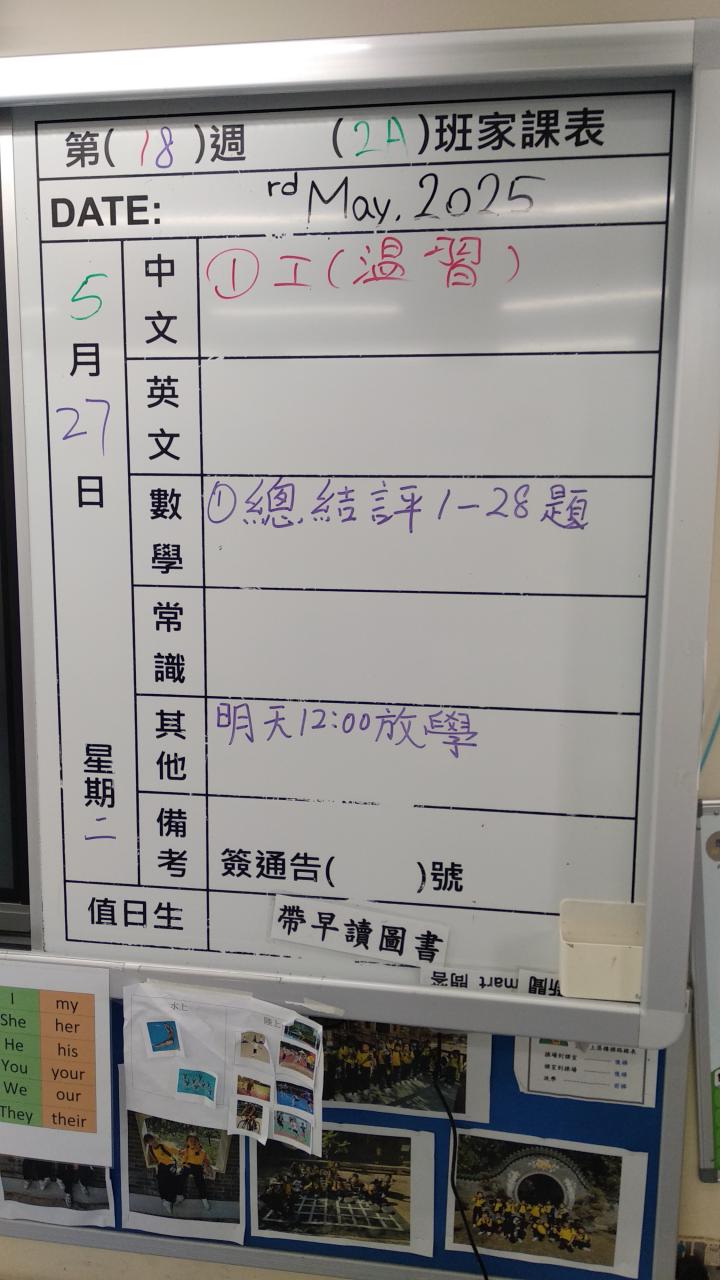 第(18)週 (2A)班家課表
DATE: rd May. 2025
5月27日
星期二
中文
①工(温習)
英文
數學
①總結評1-28題
常識
其他
明天12:00放學
備考
簽通告( )號
值日生
帶早讀圖書
新聞 mart 問答
I my
She her
He his
You your
We our
They their
水上
陸上